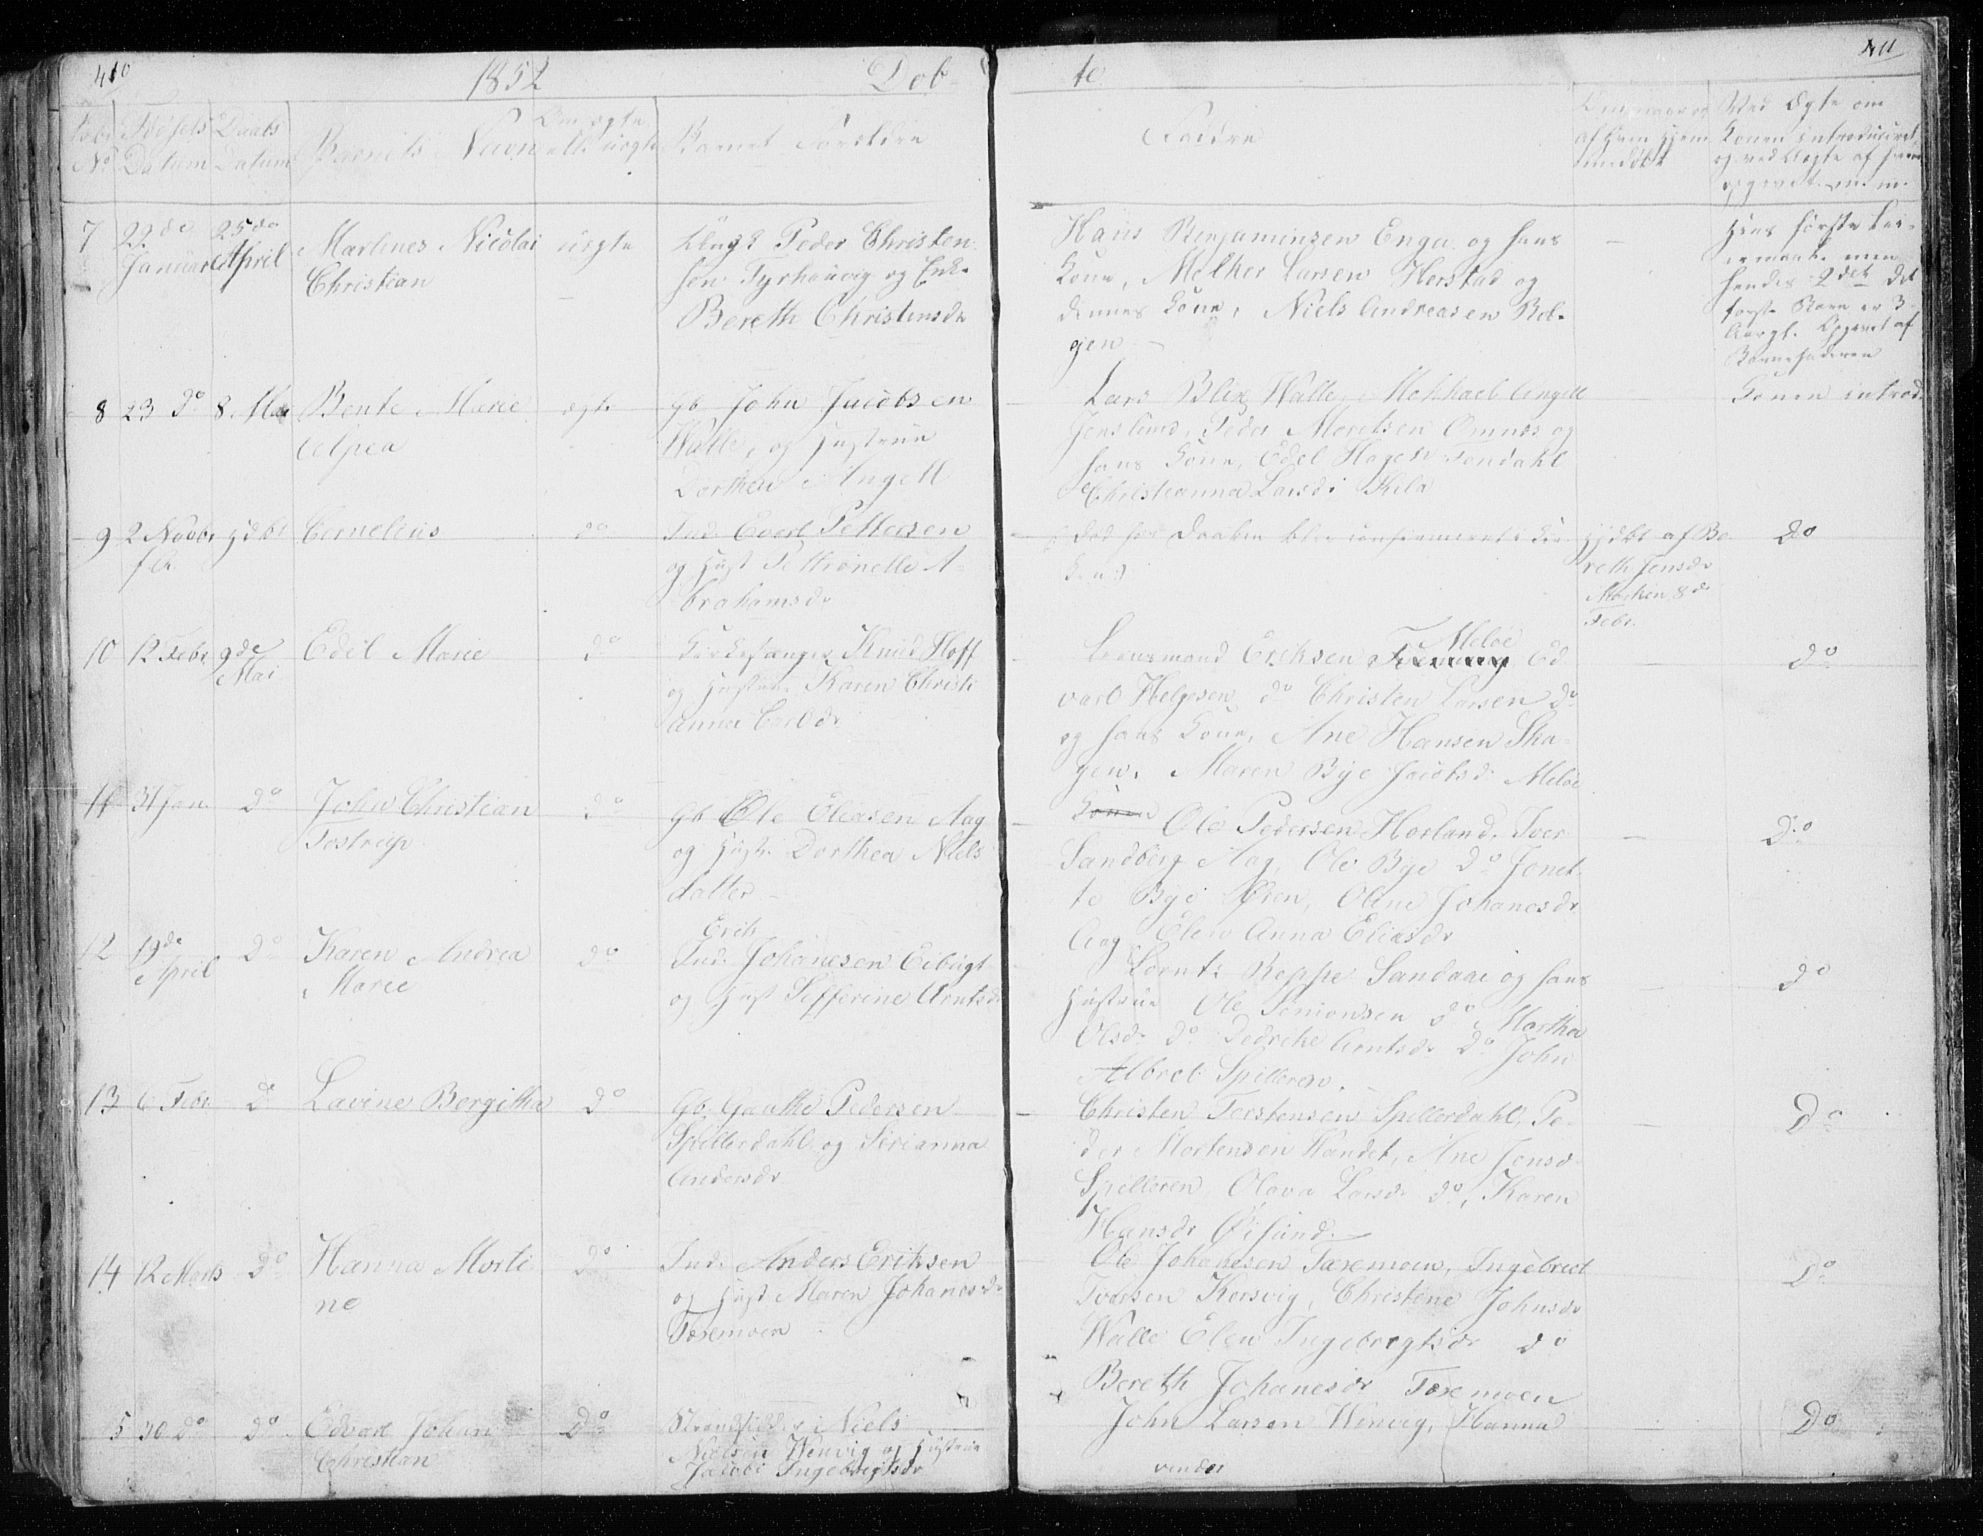 410
1852
Døb
te
411
No
Fødsels Datum
Daabs Datum
Barnets Navn
Om ægte eller uægte
Barnets Forældre
Faddre
af hvem hjemmedøbt
Ved Ægte om
Konen introduceret,
7
22de Januar
25de April
Martines Nicolai
Christian
uægte
Ungk. Peder Christen
sen Tyrhaavig og Enke
Bereth Christensdr
Hans Benjaminsen Enga og hans
Kone, Melker Larsen Herstad og
dennes Kone, Niels Andreasen Bol-
gen
Hans første Lei-
ermaal men
hendes 2det det
første Barn er 3
Aar gl. Opgivet af
Barnefaderen
8
23 do
8. Mai
Bente Marie
Alpea
ægte
Gb. John Jacobsen
Walle, og Hustrue
Dorthea Angell
Lars Blix Walle, Michael Angell
Jenslund, Peder Moretsen Omnæs og
hans Kone, Edel Hagesdr Fondahl
Christianna Larsdr Kila
Konen introd.
9
2 Novbr
hjdbt
Cornelius
do
Ind. Evert Pettersen
og Hust Pettronelle A-
brahamsdr
død før Daaben blev confirmeret i Kir
ken)
hjdbt af Be
reth Jensdr
8de
Febr.
Do
10
12 Febr
9de Mai
Edel Marie
do
Kirkesanger Knud Hoff
og Hustrue Karen Christi
anna Carlsdr
Meløe
Lensmand Eriksen Ed
vard Helgesen do Christen Larsen do
og hans Kone, Ane Hansen Ska-
gen, Maren Bye Jacobsdr Meløe
do
11
31 Jan.
do
John Christian
Tostrup
do
Gb Ole Eliasen Aag
og Hustr. Dorthea Niels
datter
Konen Ole Pedersen Horland, Iver
Sandberg Aag, Ole Bye do Jonet-
te Bye Øren, Oline Johanesdr
Aag Elen Anna Eliasdr
Do
12
19de April
do
Karen Andrea
Marie
do
Erik
Ind. Johanesen Eibugt
og Hust Sefferine Arntsdr
Lornts Reppe Sandaae og hans
Hustrue Ole Simonsen do Martha
Olsdr do Dedreke Arntsdr Do John
Albret Spilleren.
do
13
6 Febr
do
Lavine Bergitha
do
Gb. Gunthe Pedersen
Spillerdahl og Sirianna
Andersdr
Christen Torstensen Spillerdahl, Pe-
der Mortensen Vandet, Ane Jensdr
Spilleren Olava Larsdr do, Karen
Hansdr Øisund
Do
14
12 Marts
do
Hanna Morti
ne
do
Ind. Anders Eriksen
og Hust Maren Johanesdr
Toremoen
Ole Johanesen Toremoen, Ingebrect
Iversen Korsvig, Christine Johnsdr
Walle Elen Ingebregtsdr do
Bereth Johanesdr Toremoen
Do
5
30 do
do
Edvart Johan
Christian
Do
Strandsidder Niels
Nielsen Wenvig og Hustrue
Jacobe Ingebregtsdr
John Larsen Wenvig, Hanna
vendes
Do